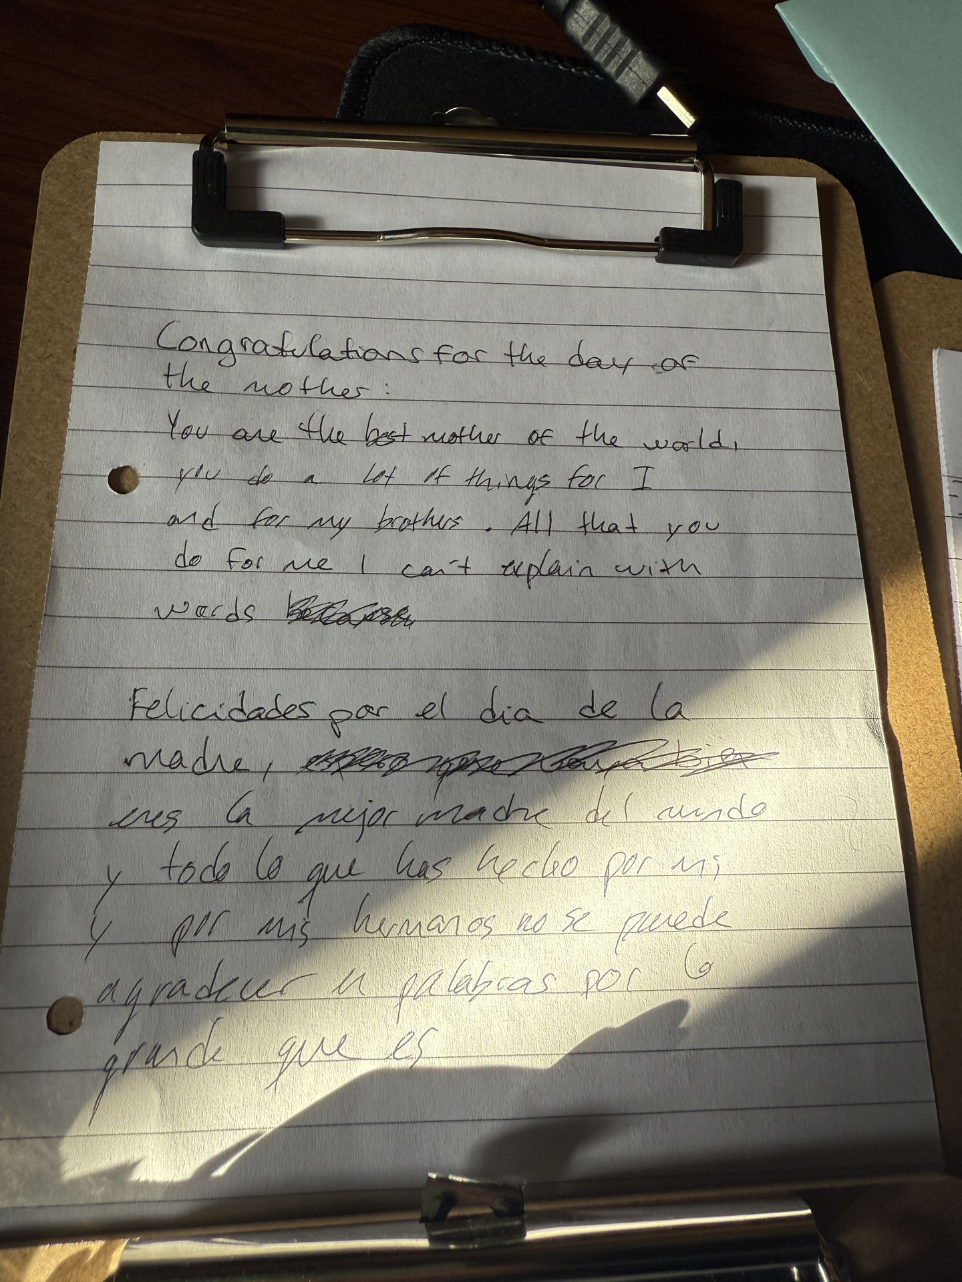 Congratulations for the day of
the mother:
You are the best mother of the world,
you do a lot of things for I
and for my brothers. All that you
do for me I can't explain with
words
Felicidades por el dia de la
madre,
eres la mejor madre del mundo
y todo lo que has hecho por mi
y por mis hermanos no se puede
agradecer en palabras por lo
grande que es